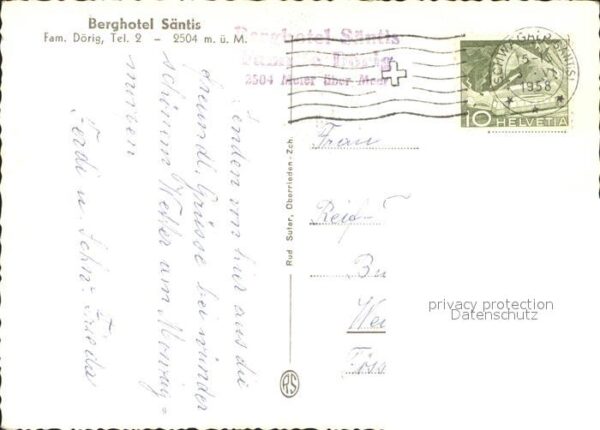 Berghotel Säntis
Fam. Dörig, Tel. 2 – 2504 m. ü. M.
Berghotel Säntis
2504 Meter über Meer
SCHWÄGALP (SÄNTIS)
15
1958
10 HELVETIA
Senden von hier aus die
freundl. Grüsse bei wunder
schönem Wetter am
nunen
Ferdi u. Schw. Frieda
Rud Suter, Oberrieden-Zch.
RS
Frau
Reif-
Bu
We
Töss
privacy protection
Datenschutz